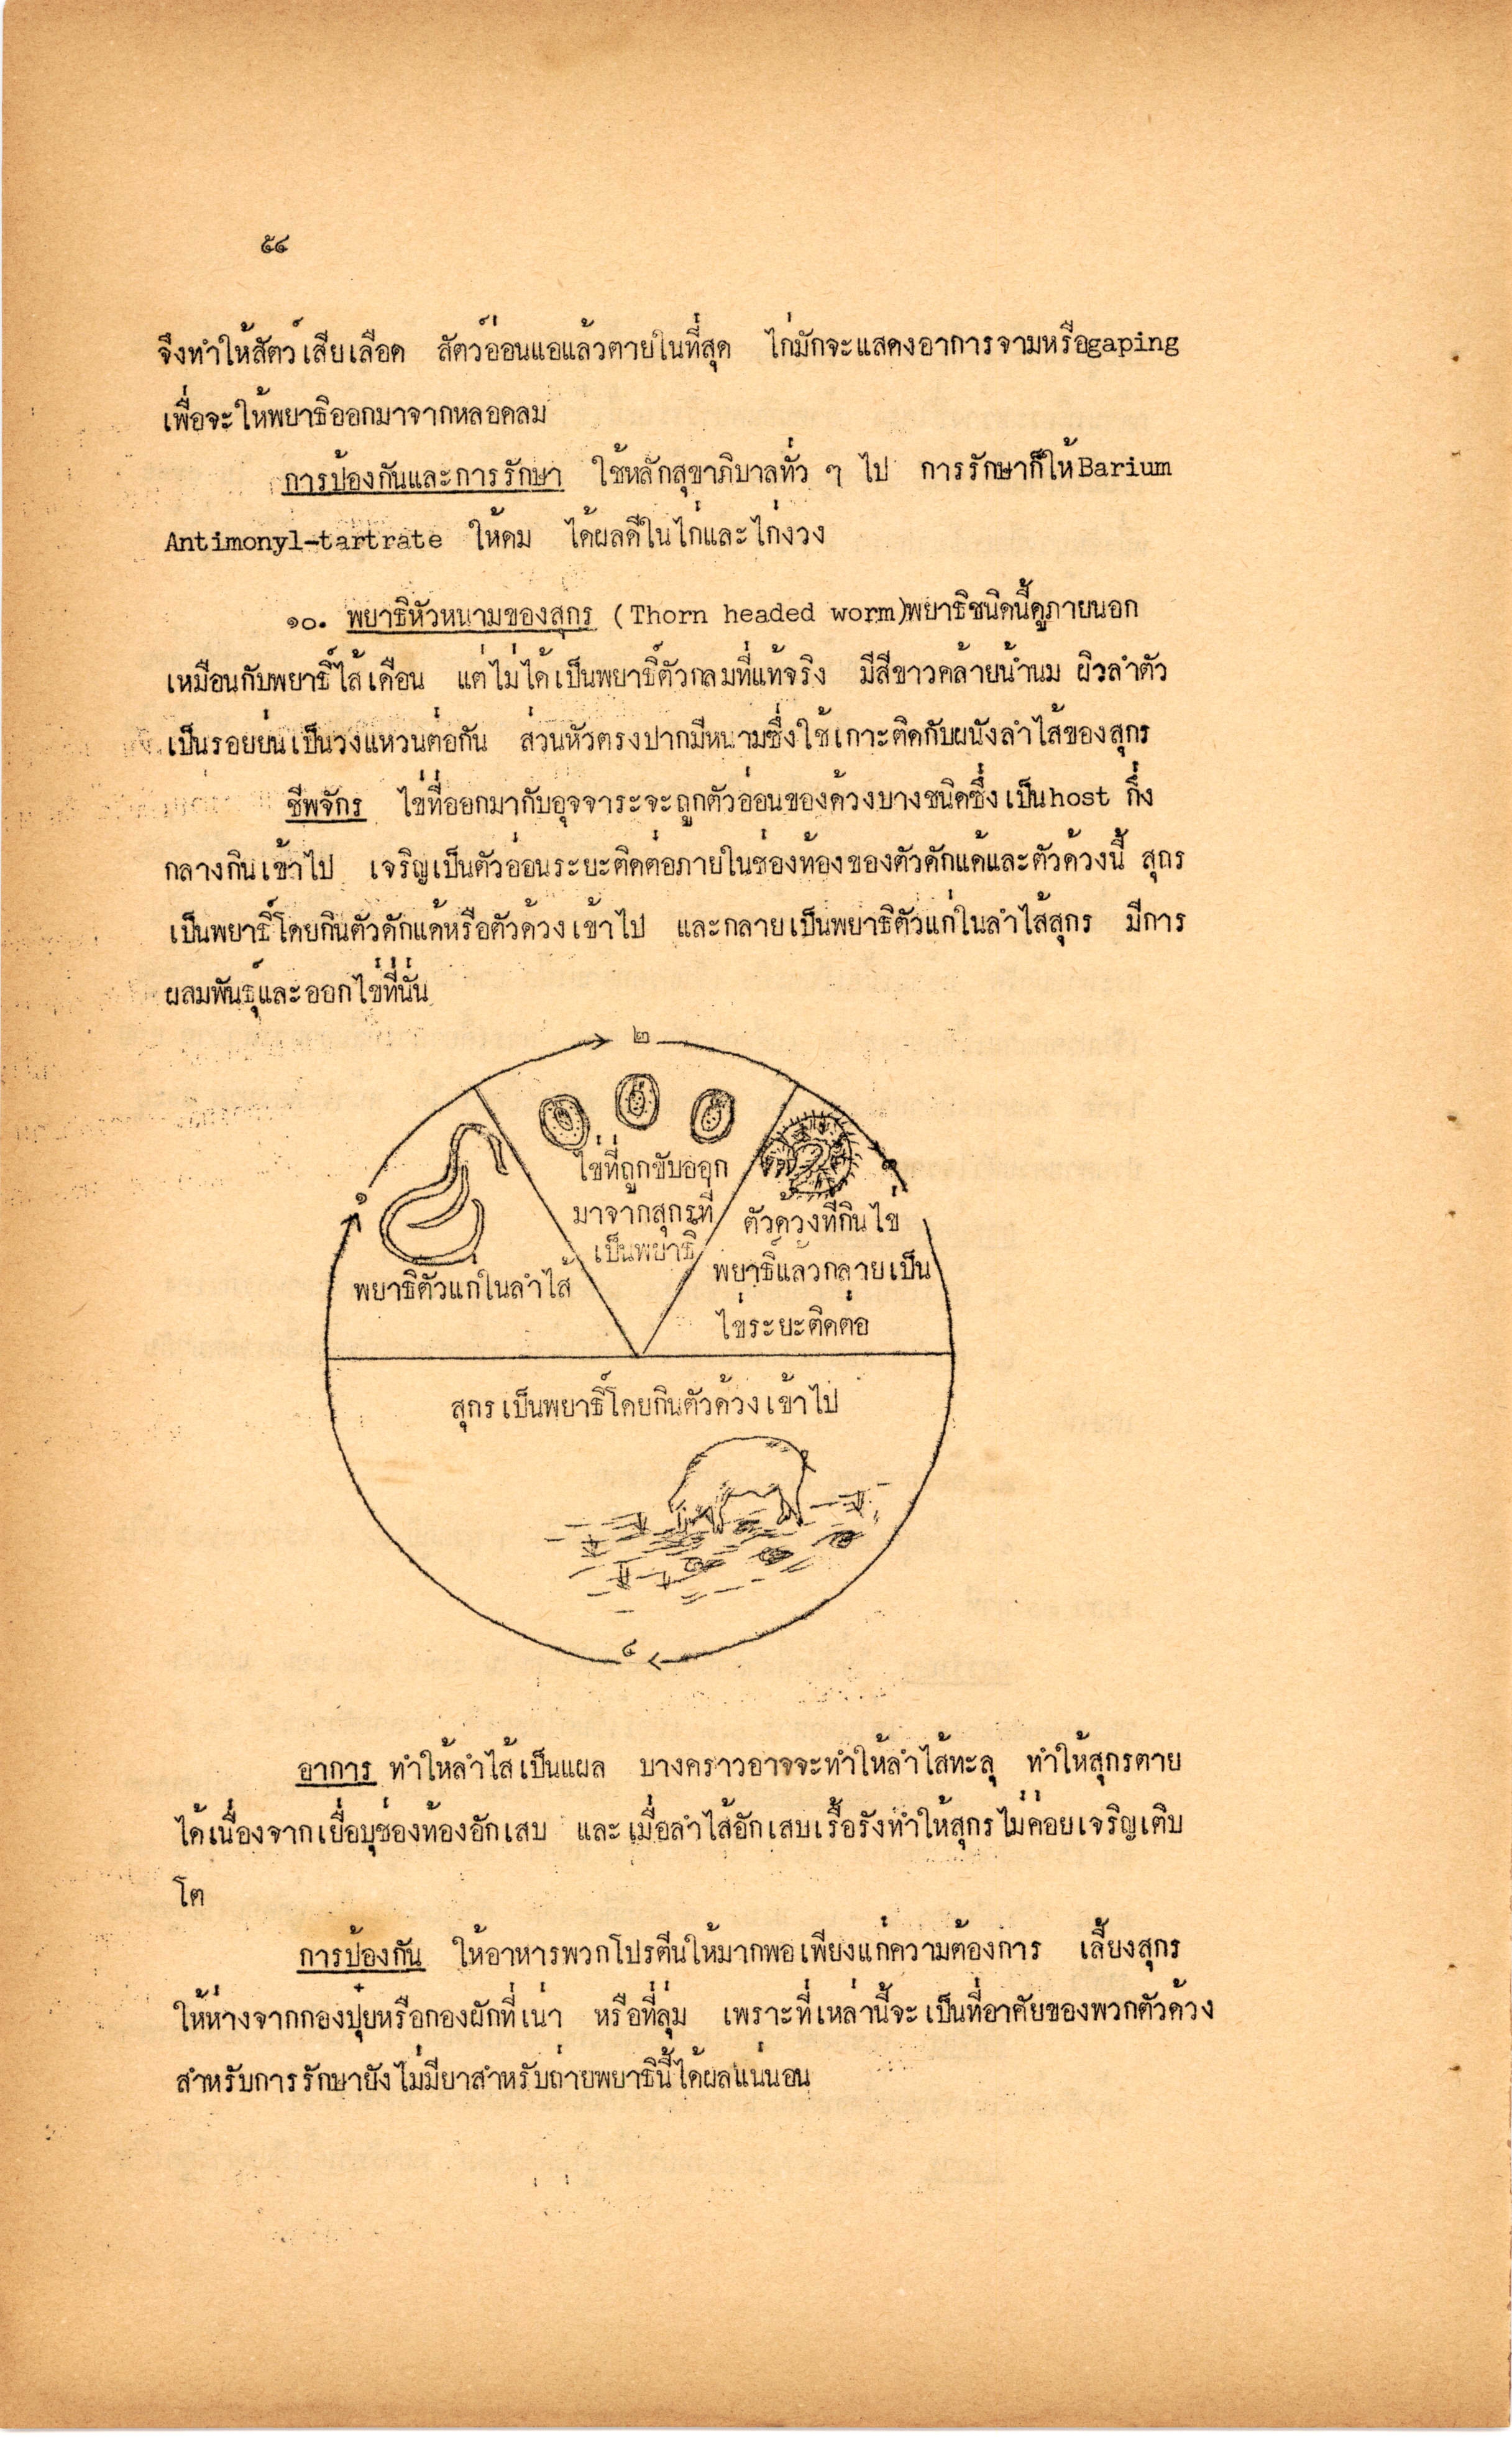 ๕๖
จึงทำให้สัตว์เสียเลือด สัตว์อ่อนแอแล้วตายในที่สุด ไก่มักจะแสดงอาการจามหรือgaping
เพื่อจะให้พยาธิออกมาจากหลอดลม
การป้องกันและการรักษา ใช้หลักสุขาภิบาลทั่ว ๆ ไป การรักษาก็ให้Barium
Antimonyl-tartrate ให้ดม ได้ผลดีในไก่และไก่งวง
๑๐. พยาธิหัวหนามของสุกร (Thorn headed worm)พยาธิชนิดนี้ดูภายนอก
เหมือนกับพยาธิ์ไส้เดือน แต่ไม่ได้เป็นพยาธิ์ตัวกลมที่แท้จริง มีสีขาวคล้ายน้ำนม ผิวลำตัว
เป็นรอยย่นเป็นวงแหวนต่อกัน ส่วนหัวตรงปากมีหนามซึ่งใช้เกาะติดกับผนังลำไส้ของสุกร
ชีพจักร ไข่ที่ออกมากับอุจจาระจะถูกตัวอ่อนของด้วงบางชนิดซึ่งเป็นhost กึ่ง
กลางกินเข้าไป เจริญเป็นตัวอ่อนระยะติดต่อภายในช่องท้องของตัวดักแด้และตัวด้วงนี้ สุกร
เป็นพยาธิ์โดยกินตัวดักแด้หรือตัวด้วงเข้าไป และกลายเป็นพยาธิตัวแก่ในลำไส้สุกร มีการ
ผสมพันธุ์และออกไข่ที่นั่น
๒
ไข่ที่ถูกขับออก
มาจากสุกรที่
เป็นพยาธิ
ตัวด้วงที่กินไข่
พยาธิ์แล้วกลายเป็น
ไข่ระยะติดต่อ
๑
พยาธิตัวแก่ในลำไส้
สุกรเป็นพยาธิ์โดยกินตัวด้วงเข้าไป
อาการ ทำให้ลำไส้เป็นแผล บางคราวอาจจะทำให้ลำไส้ทะลุ ทำให้สุกรตาย
ได้เนื่องจากเยื่อบุช่องท้องอักเสบ และเมื่อลำไส้อักเสบเรื้อรังทำให้สุกรไม่ค่อยเจริญเติบ
โต
การป้องกัน ให้อาหารพวกโปรตีนให้มากพอเพียงแก่ความต้องการ เลี้ยงสุกร
ให้ห่างจากกองปุ๋ยหรือกองผักที่เน่า หรือที่ลุ่ม เพราะที่เหล่านี้จะเป็นที่อาศัยของพวกตัวด้วง
สำหรับการรักษายังไม่มียาสำหรับถ่ายพยาธินี้ได้ผลแน่นอน